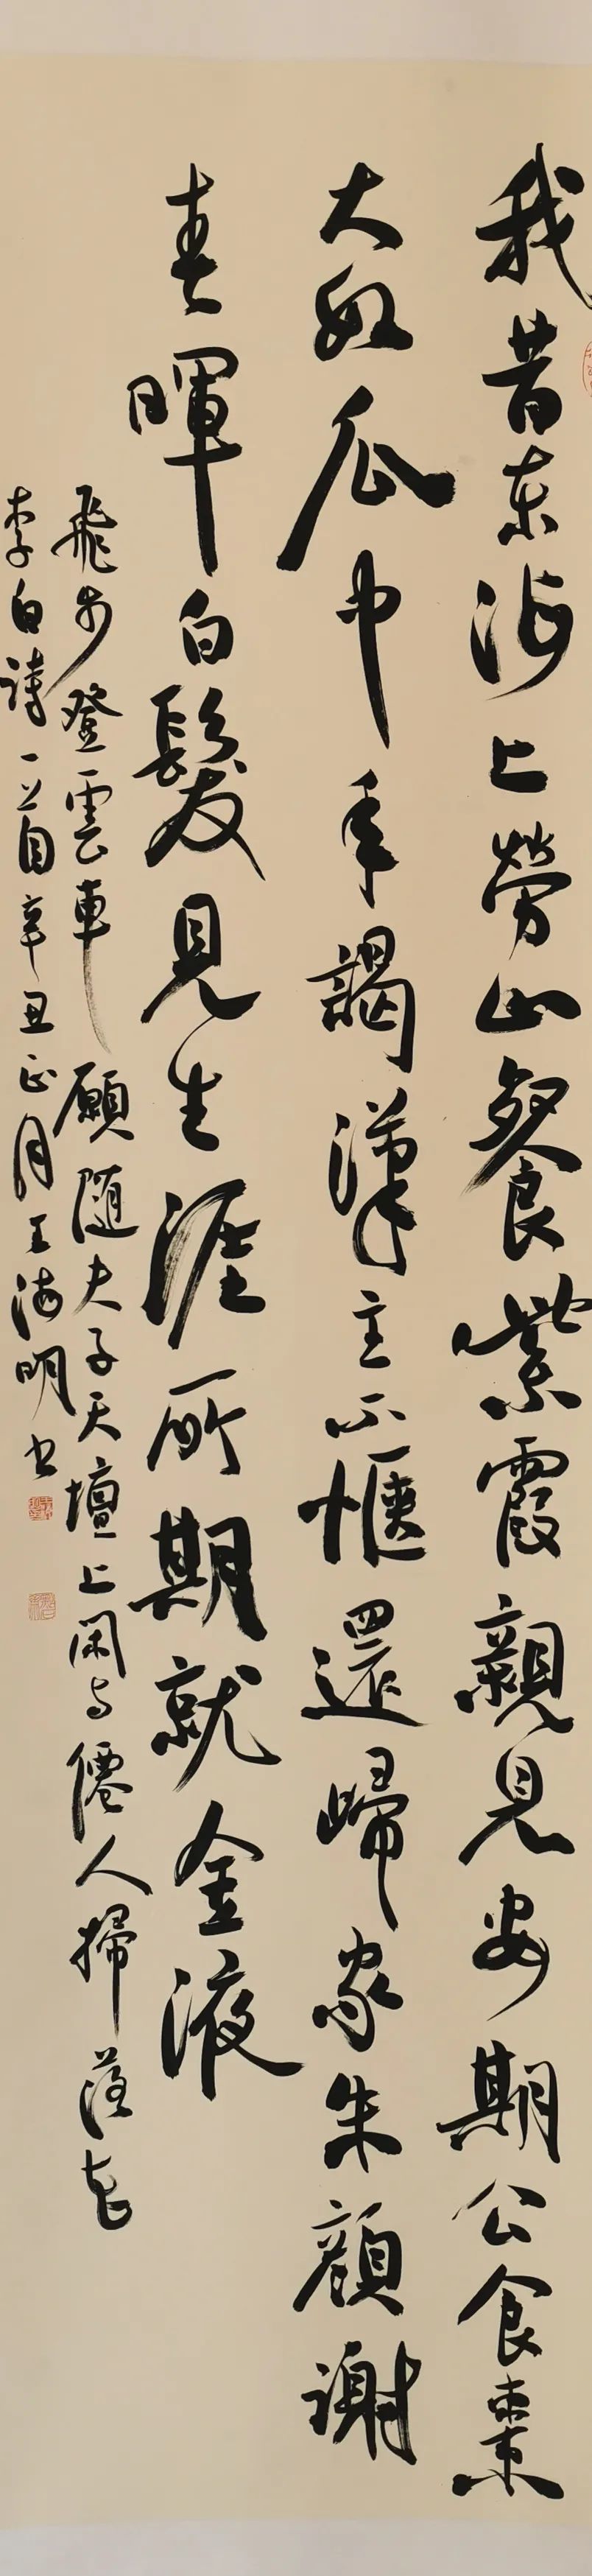 我昔东海上劳山餐紫霞親見安期公食棗
大如瓜中年謁漢主不愜還歸家朱顔謝
春暉白髮見生涯所期就金液
飛步登雲車願随夫子天壇上闲与僊人掃落花
李白詩一首辛丑正月王海明书